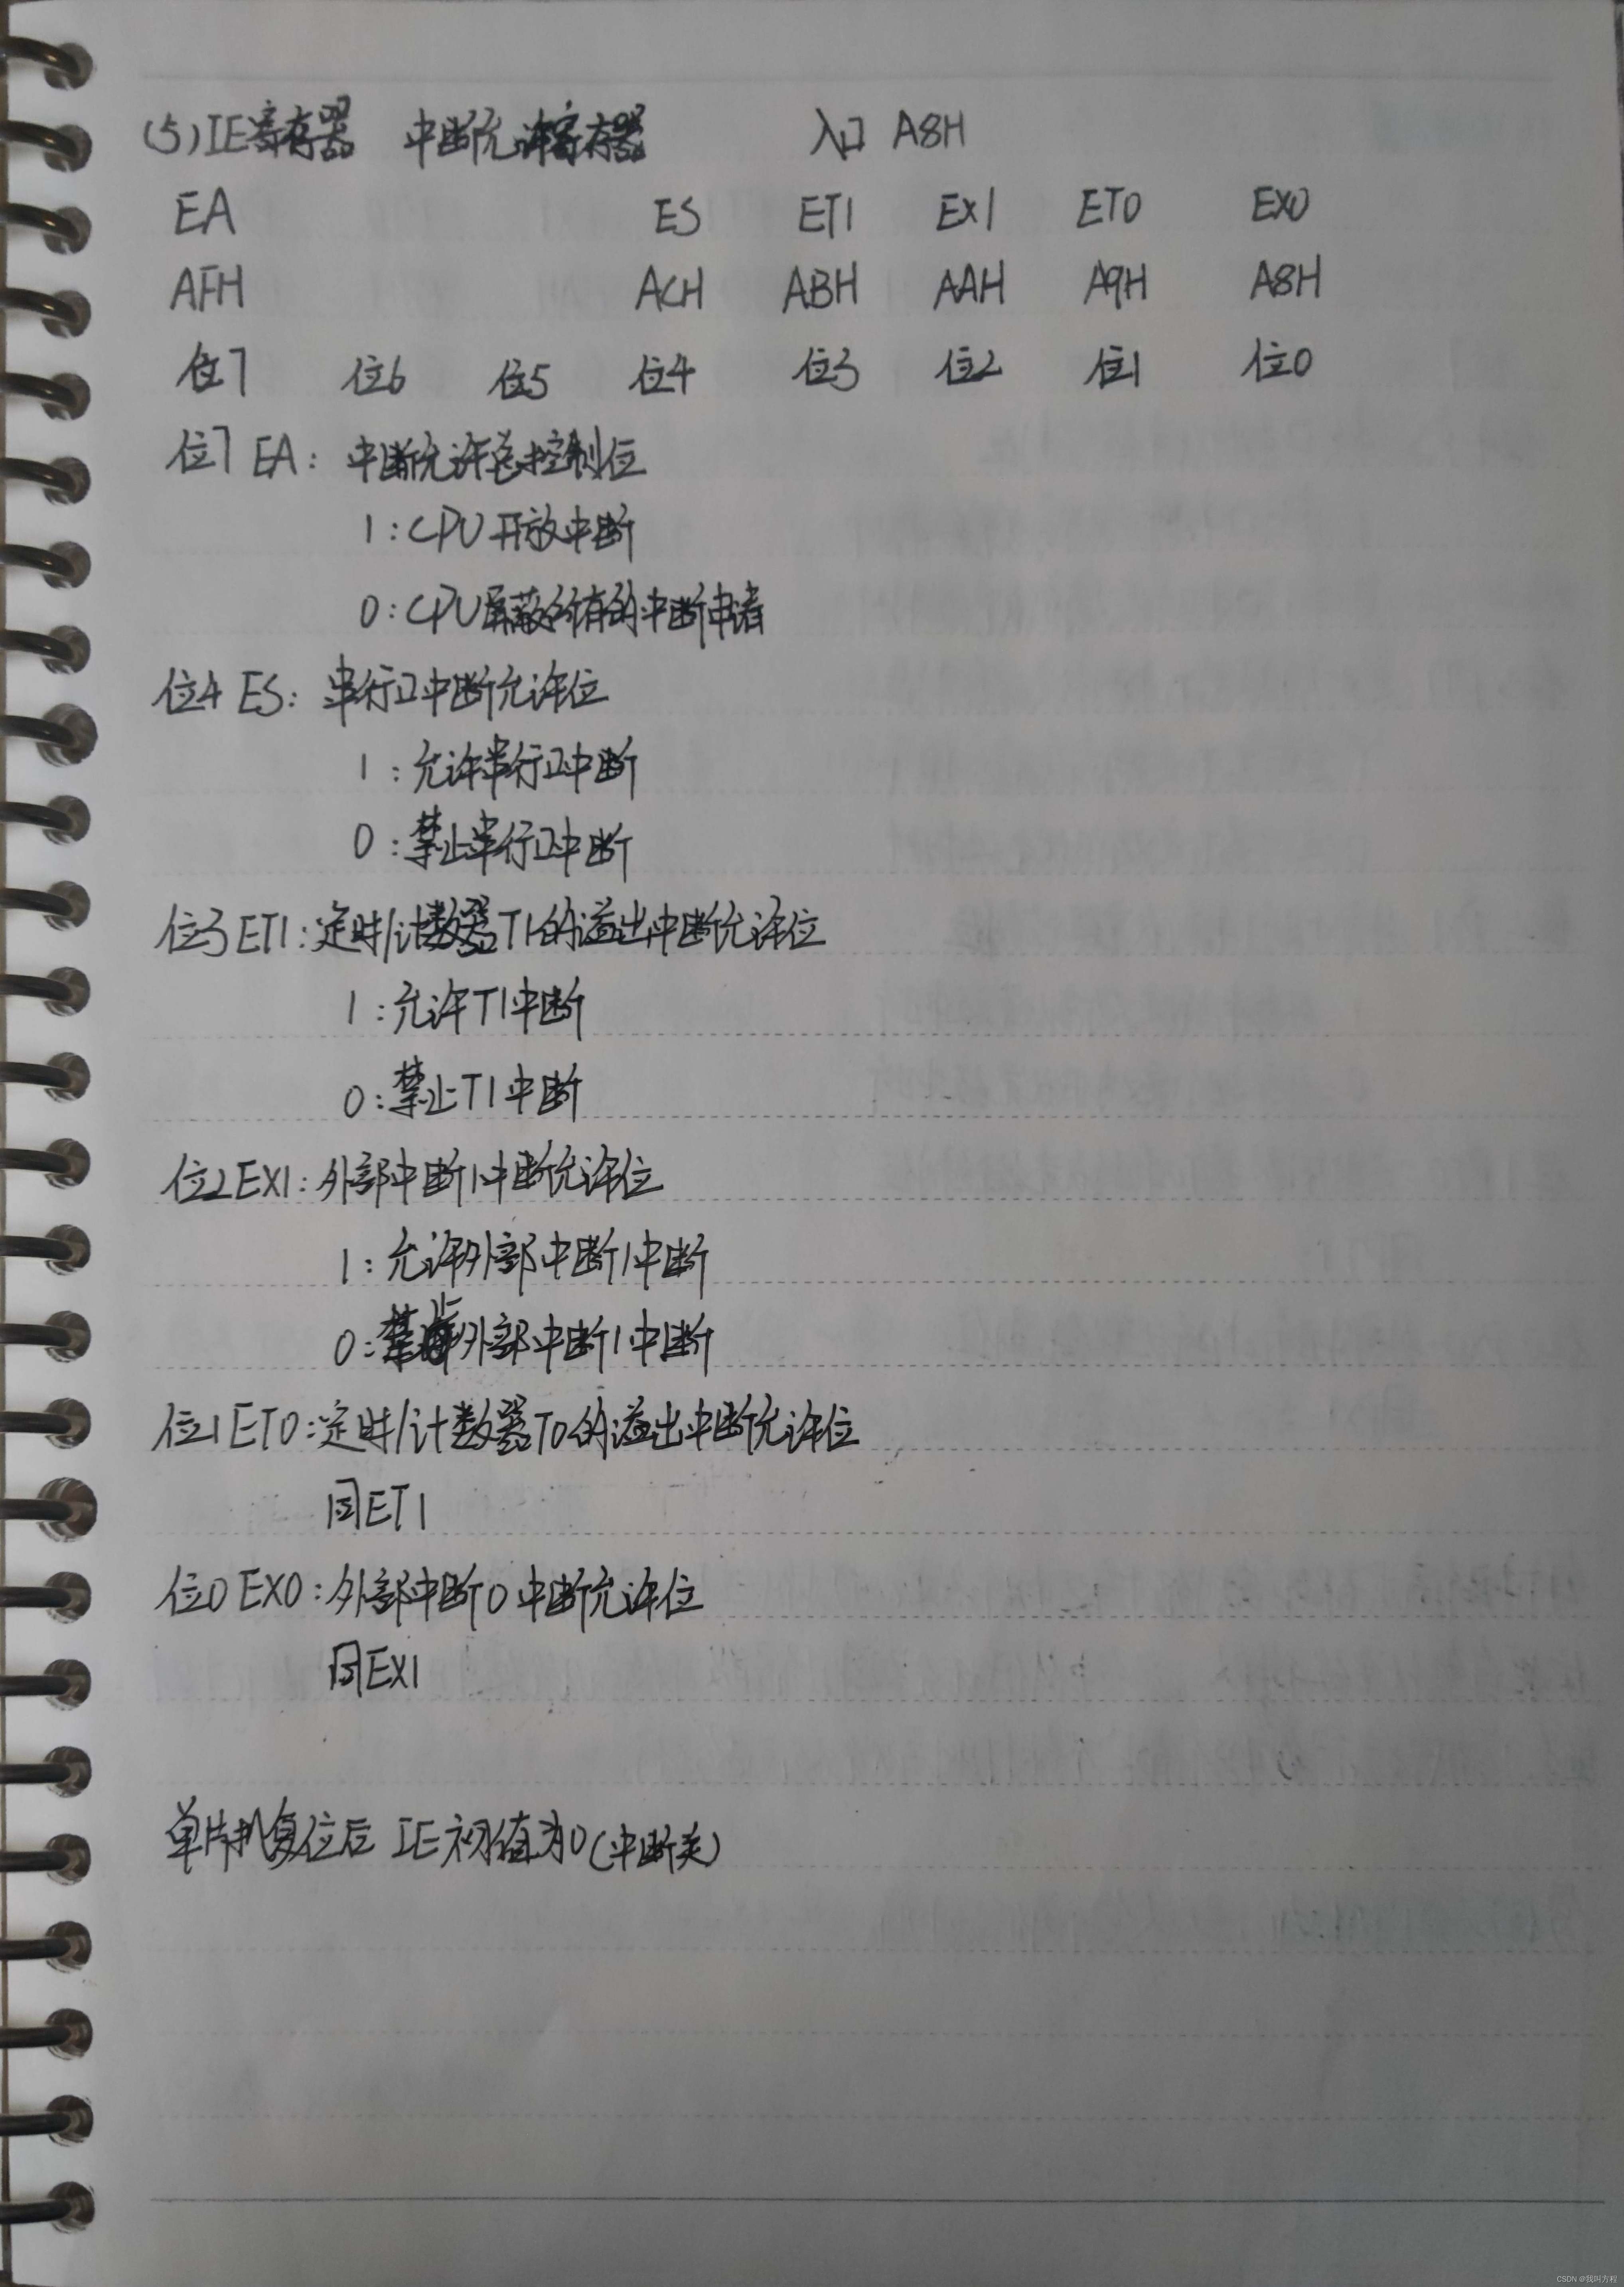 (5) IE寄存器 中断允许寄存器 入口 A8H
EA ES ET1 EX1 ET0 EX0
AFH ACH ABH AAH A9H A8H
位7 位6 位5 位4 位3 位2 位1 位0
位7 EA: 中断允许总控制位
1:CPU开放中断
0:CPU屏蔽所有的中断申请
位4 ES: 串行口中断允许位
1:允许串行口中断
0:禁止串行口中断
位3 ET1:定时/计数器T1的溢出中断允许位
1:允许T1中断
0:禁止T1中断
位2 EX1:外部中断1中断允许位
1:允许外部中断1中断
0:禁止外部中断1中断
位1 ET0:定时/计数器T0的溢出中断允许位
同ET1
位0 EX0:外部中断0中断允许位
同EX1
单片机复位后 IE初值为0(中断关)
CSDN @我叫方程